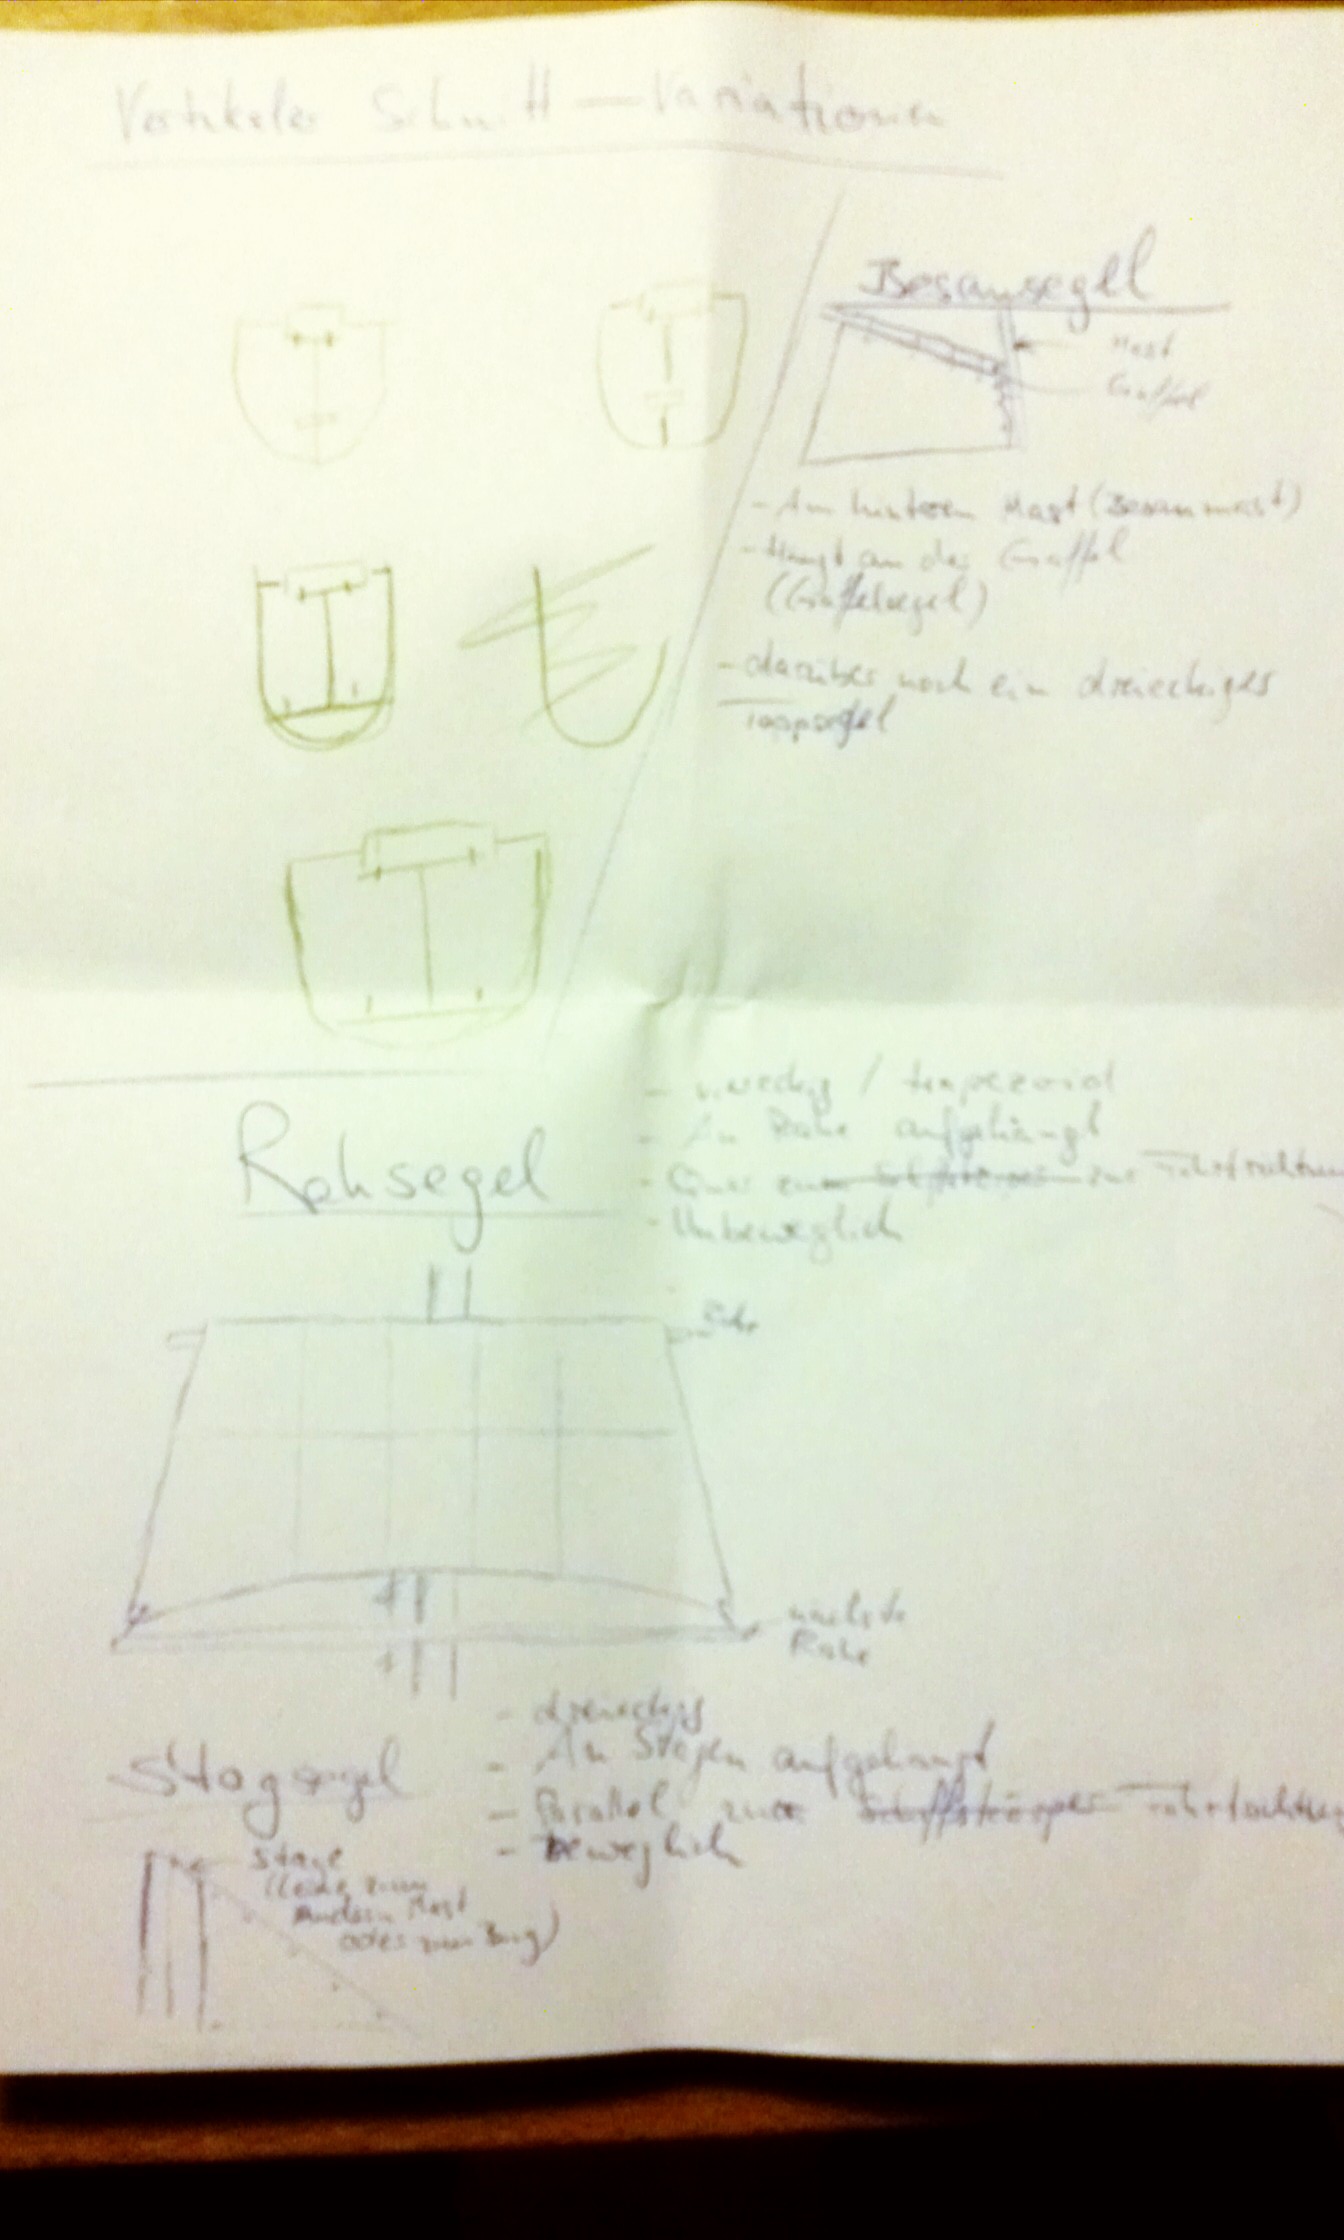 Vertikaler Schnitt — Variationen
Besansegel
Mast
Gaffel
- Am hinteren Mast (Besanmast)
- Hängt an der Gaffel
(Gaffelsegel)
- darüber noch ein dreieckiges
Toppsegel
Rahsegel
- viereckig / trapezoid
- An Rahe aufgehängt
- Quer zur Fahrtrichtung
- Unbeweglich
Rahe
nächste
Rahe
Stagsegel
- dreieckig
- An Stagen aufgehängt
- Parallel zur Schiffskörper Fahrtrichtung
- Beweglich
Stage
(Leine zum
andern Mast
oder zum Bug)